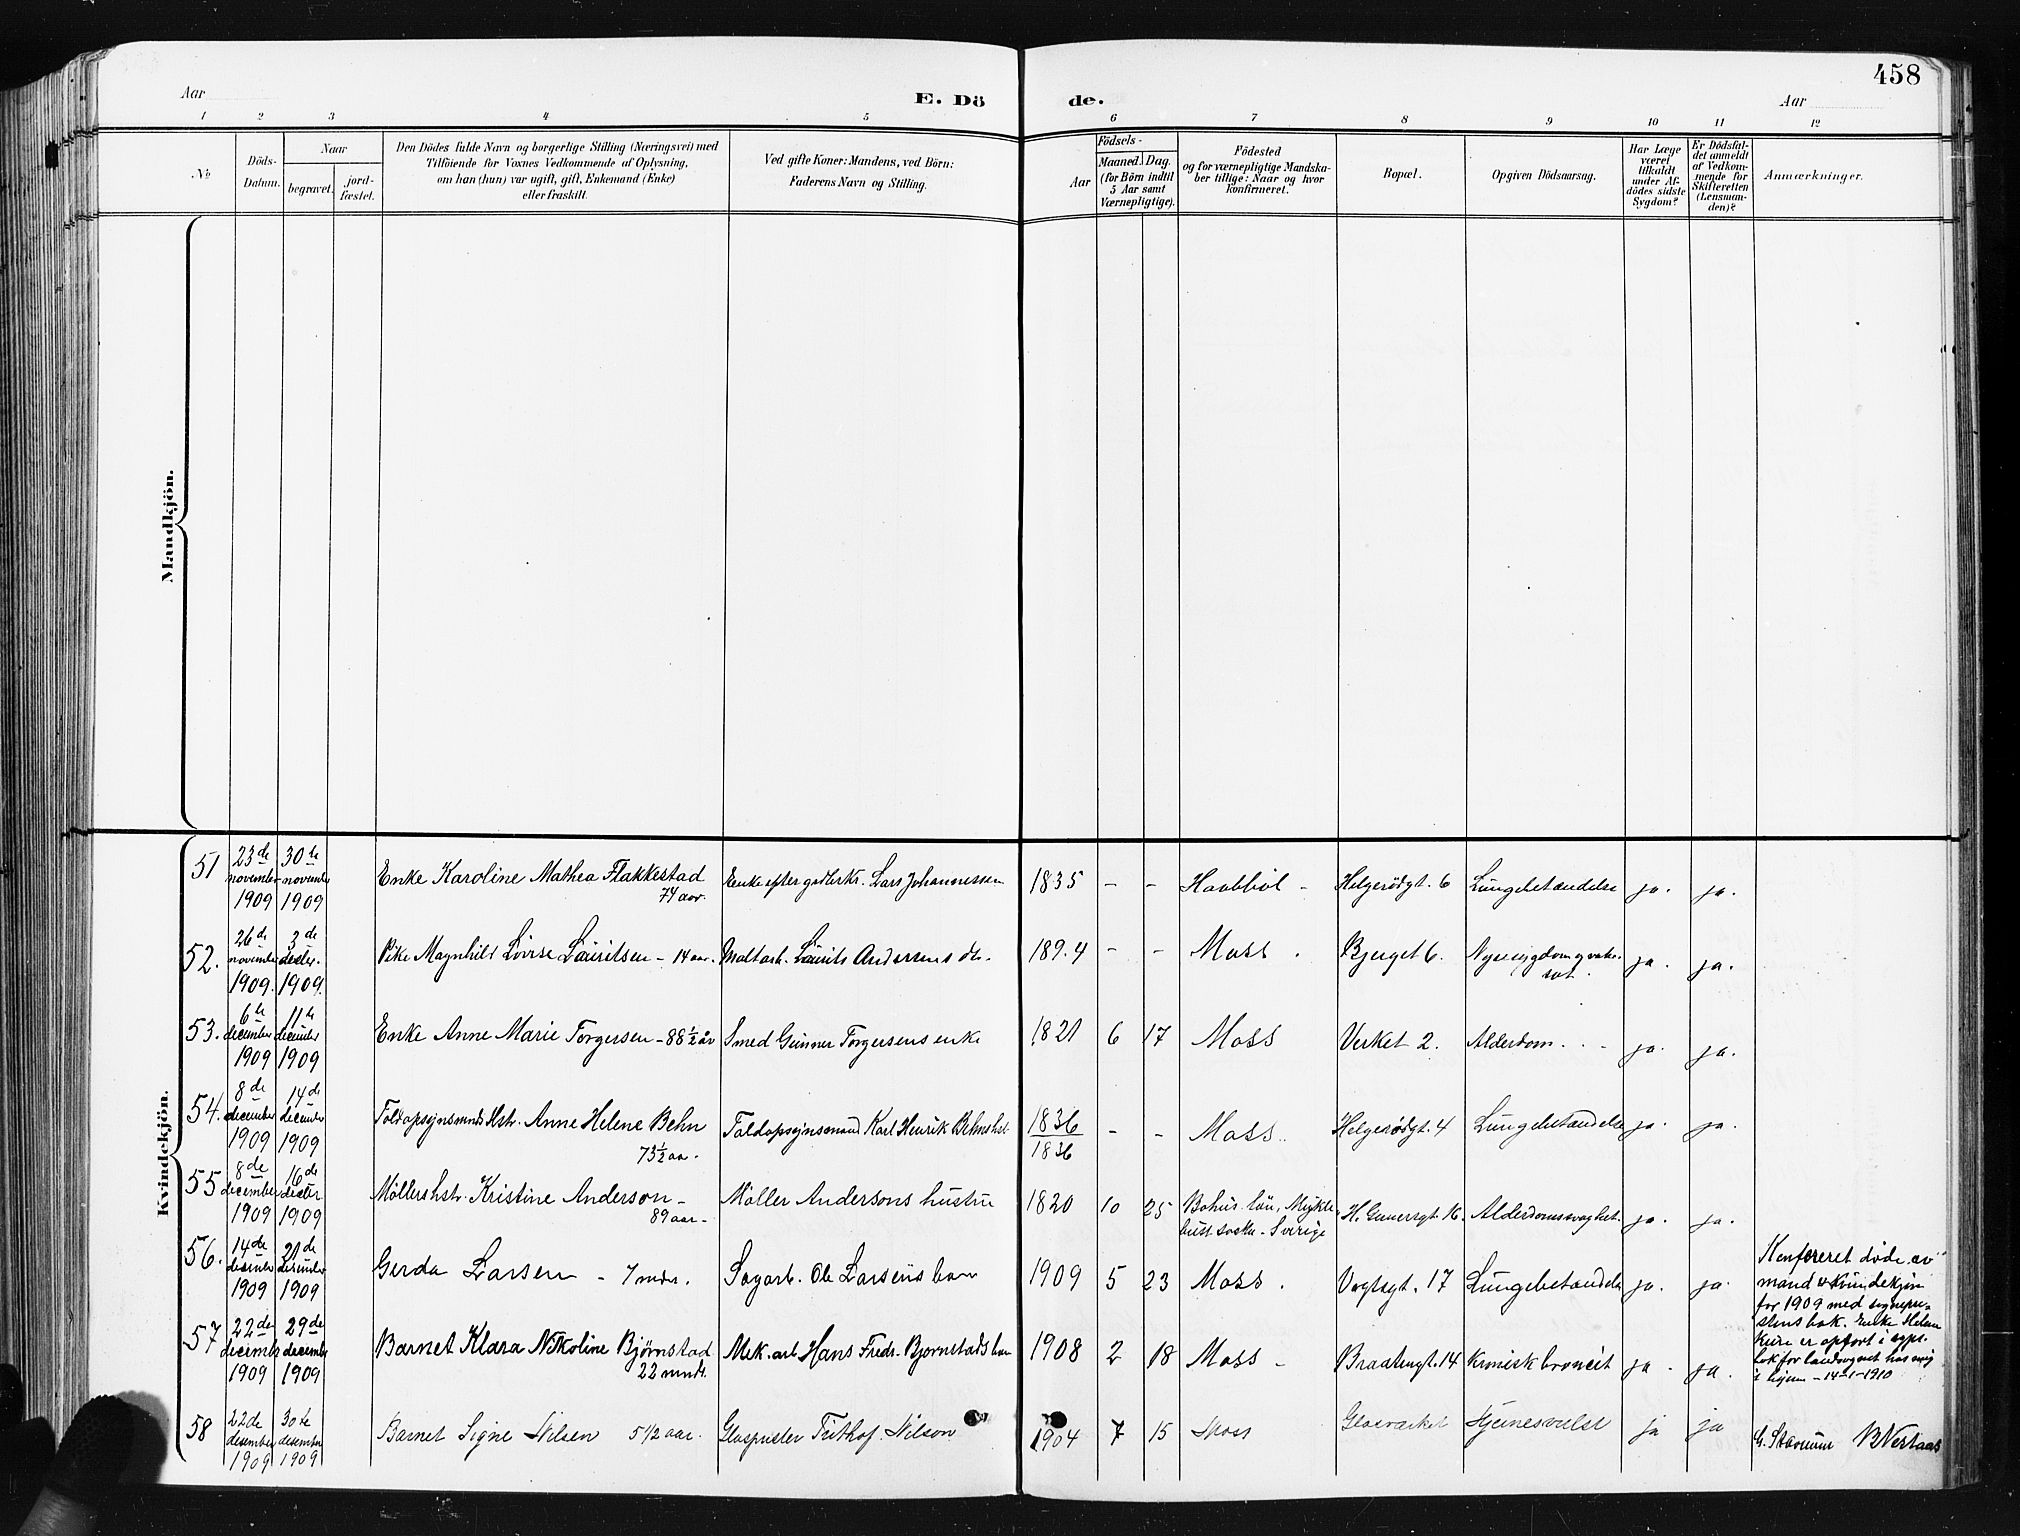 458
Aar
E. Dö
de.
Aar
1 2 3 4 5 6 7 8 9 10 11 12
№
Döds-
Datum.
Naar
begravet.
jord-
fæstet.
Den Dödes fulde Navn og borgerlige Stilling (Næringsvei) med
Tilföiende for Voxnes Vedkommende af Oplysning,
om han (hun) var ugift, gift, Enkemand (Enke)
eller fraskilt.
Ved gifte Koner: Mandens, ved Börn:
Faderens Navn og Stilling.
Födsels-
Aar
Maaned. Dag.
(for Börn indtil
5 Aar samt
Værnepligtige).
Födested
og for værnepligtige Mandska-
ber tillige: Naar og hvor
konfirmeret.
Bopæl.
Opgiven Dödsaarsag.
Har Læge
været
tilkaldt
under Af-
dödes sidste
Sygdom?
Er Dödsfal-
det anmeldt
af Vedkom-
mende for
Skifteretten
(Lensman-
den)?
Anmærkninger.
Mandkjön.
Kvindekjön.
51 23de november 1909 30te november 1909 Enke Karoline Mathea Flakkestad 74 aar. Enke efter Lars Johannessen 1835 - - Haabböl - Helgerødgt. 6 Lungebetændelse ja. ja.
52. 26de november 1909. 3de decbr. 1909. Pike Magnhild Lovise Lauritsen - 14 aar. Maltarb. Laurits Andersens dtr. 1894 - - Moss. Bjerget 6. Nyresygdom ja. ja.
53. 6te december 1909 11te december 1909 Enke Anne Marie Torgersen - 88 1/2 år Smed Gunner Torgersens enke 1821 6 17 Moss Verket 2. Alderdom. - ja. ja.
54. 8de december 1909 14de december 1909 Toldopsynsmands Hstr. Anne Helene Behn 73 1/2 aar. Toldopsynsmand Karl Henrik Behns hst. 1836 1836 - - Moss.. Helgerødgt. 4 Lungebetændelse ja. ja.
55 8de december 1909 16de decbr 1909 Möllers hstr. Kristine Anderson - 89 aar. - Möller Andersons hustru 1820 10 25 Bohus län, Sverige H. Gunersgt. 16. Alderdomssvaghet. ja. ja.
56. 14de desember 1909 21de desember 1909 Gerda Larsen - 7 mdr. Sagarb. Ole Larsens barn 1909 5 23 Moss. Vogtsgt. 17 Lungebetændelse ja. ja.
57 22de december 1909 29de december 1909 Barnet Klara Nikoline Bjørnstad 22 mndr. Mek. arb Hans Fredr. Bjørnstads barn 1908 2 18 Moss - Braatengt. 14 Kronisk broncit ja. ja.
58 22de desember 1909 30te desember 1909 Barnet Signe Nilsen 5 1/2 aar. Glaspuster Frithof Nilson 1904 7 15 Moss Glasværket Hjernesvulst ja ja
Konfereret døde av
mand & kvindekjøn
for 1909 med sognepre-
stens bok. Enke Helene
er opført i
bok for landsognet hos mig
14-1-1910
G. Stavrum